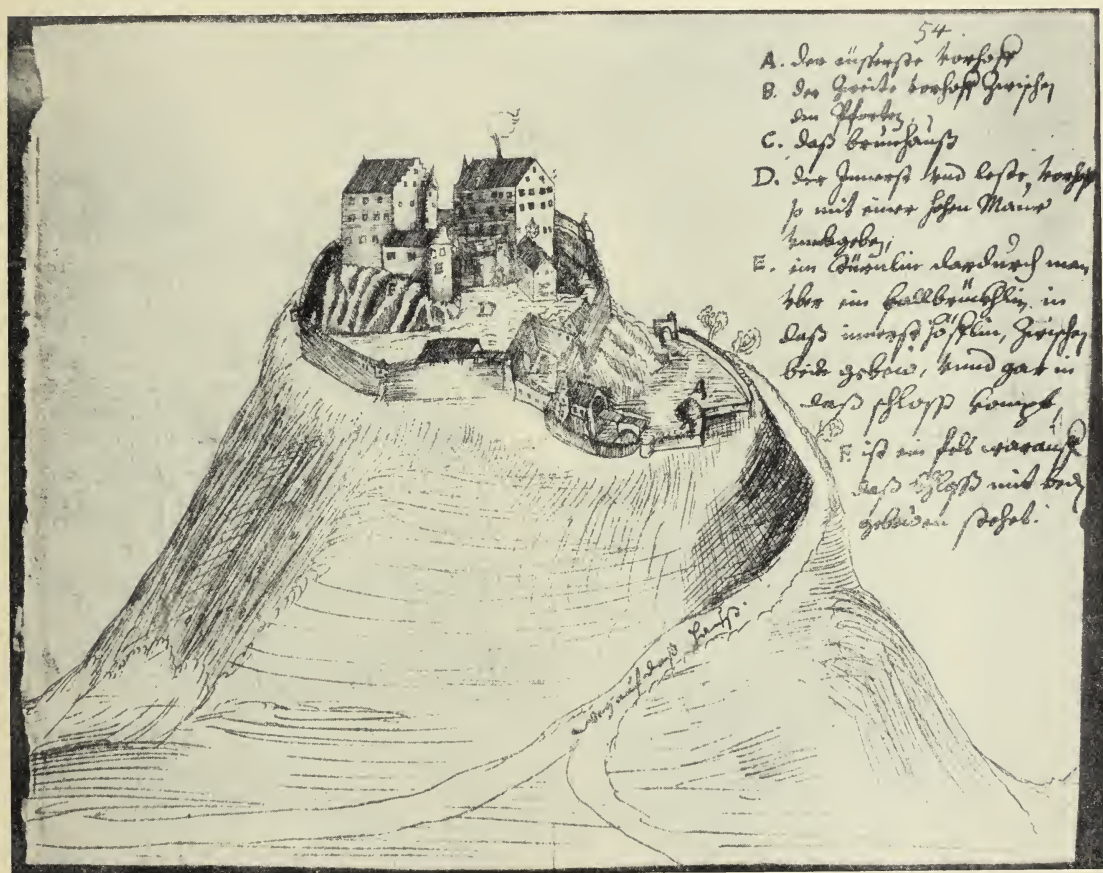 54
A. der eüsserste vorhoff
B. der Zweite vorhoff Zwischen
den Pforten,
C. daß brunhauß
D. der Innerst vnd leste, vorhoff
so mit einer hohen Maur
vmbgeben;
E. ein türnlin dardurch man
vber ein fallbrücklin in
daß innerst höfflin, Zwischen
beide gebew, vnnd gar in
daß schloss kompt,
F ist ein fels warauff
daß schloß mit beden
gebeuen stehet.
D
A
weg auf daß hauß.